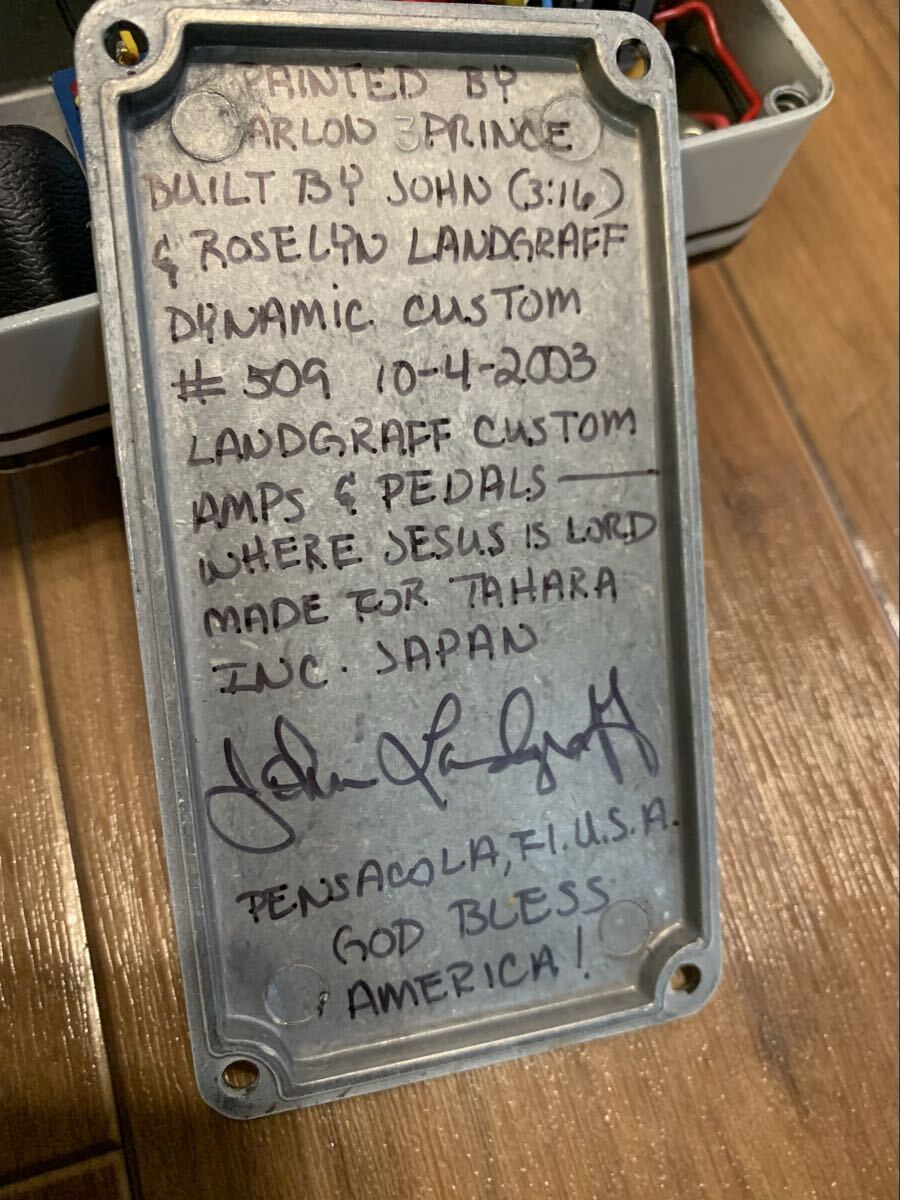 PAINTED BY
ARLON 3 PRINCE
BUILT BY JOHN (3:16)
& ROSELYN LANDGRAFF
DYNAMIC CUSTOM
# 509 10-4-2003
LANDGRAFF CUSTOM
AMPS & PEDALS —
WHERE JESUS IS LORD
MADE FOR TAHARA
INC. JAPAN
John Landgraff
PENSACOLA, Fl. U.S.A.
GOD BLESS
AMERICA!